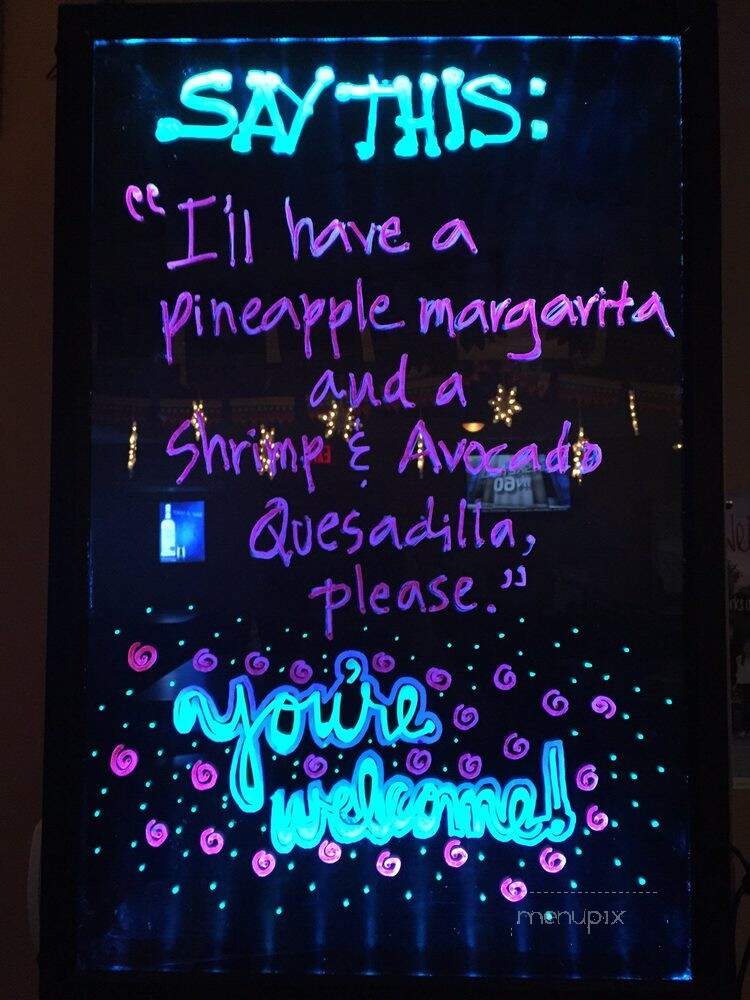 SAY THIS:
“I'll have a
pineapple margarita
and a
Shrimp & Avocado
Quesadilla,
please.”
you're
welcome!
menupix